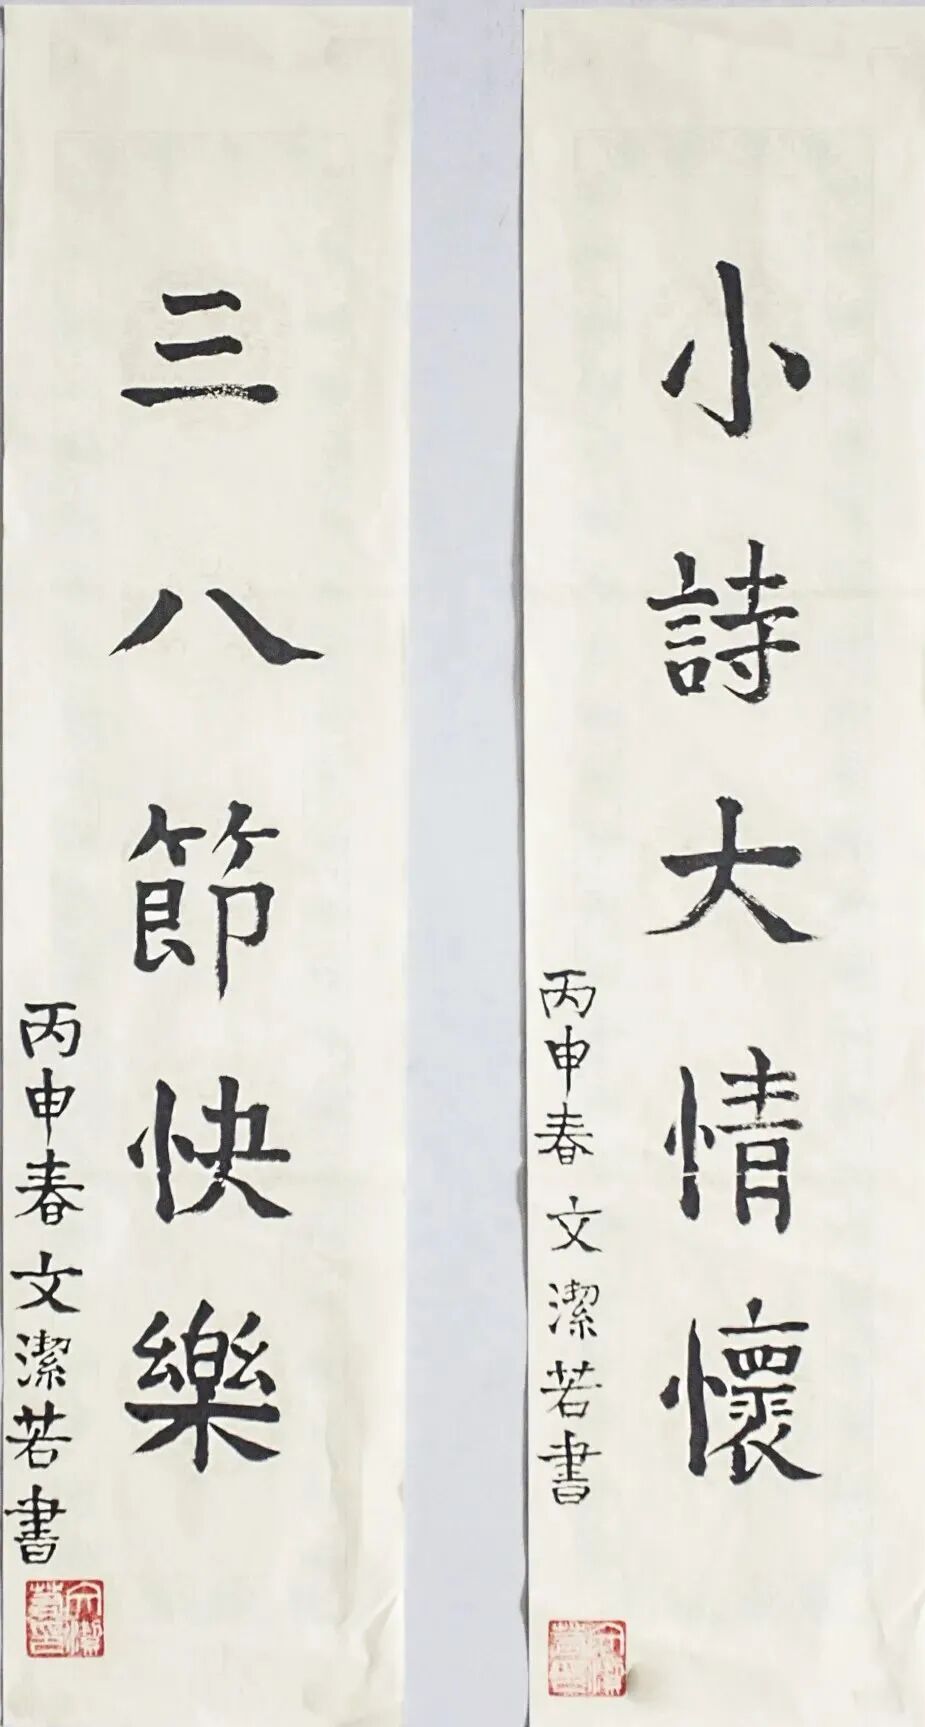 小詩大情懷
丙申春 文潔若書
三八節快樂
丙申春文潔若書